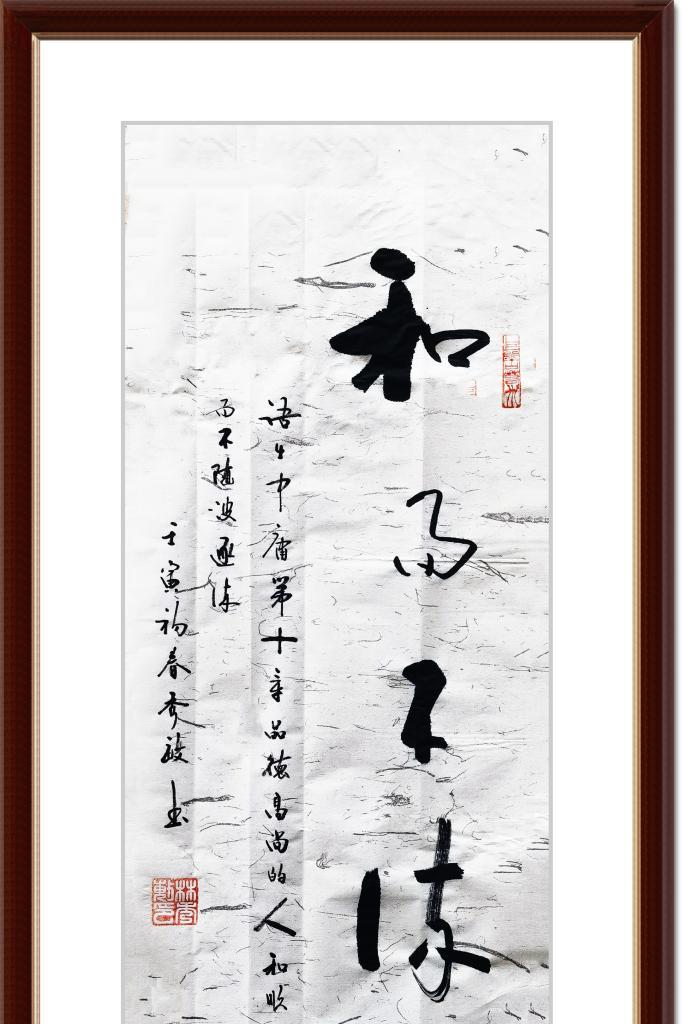 和而不流
语出中庸第十章品德高尚的人和顺
而不随波逐流
壬寅初春秀毅书